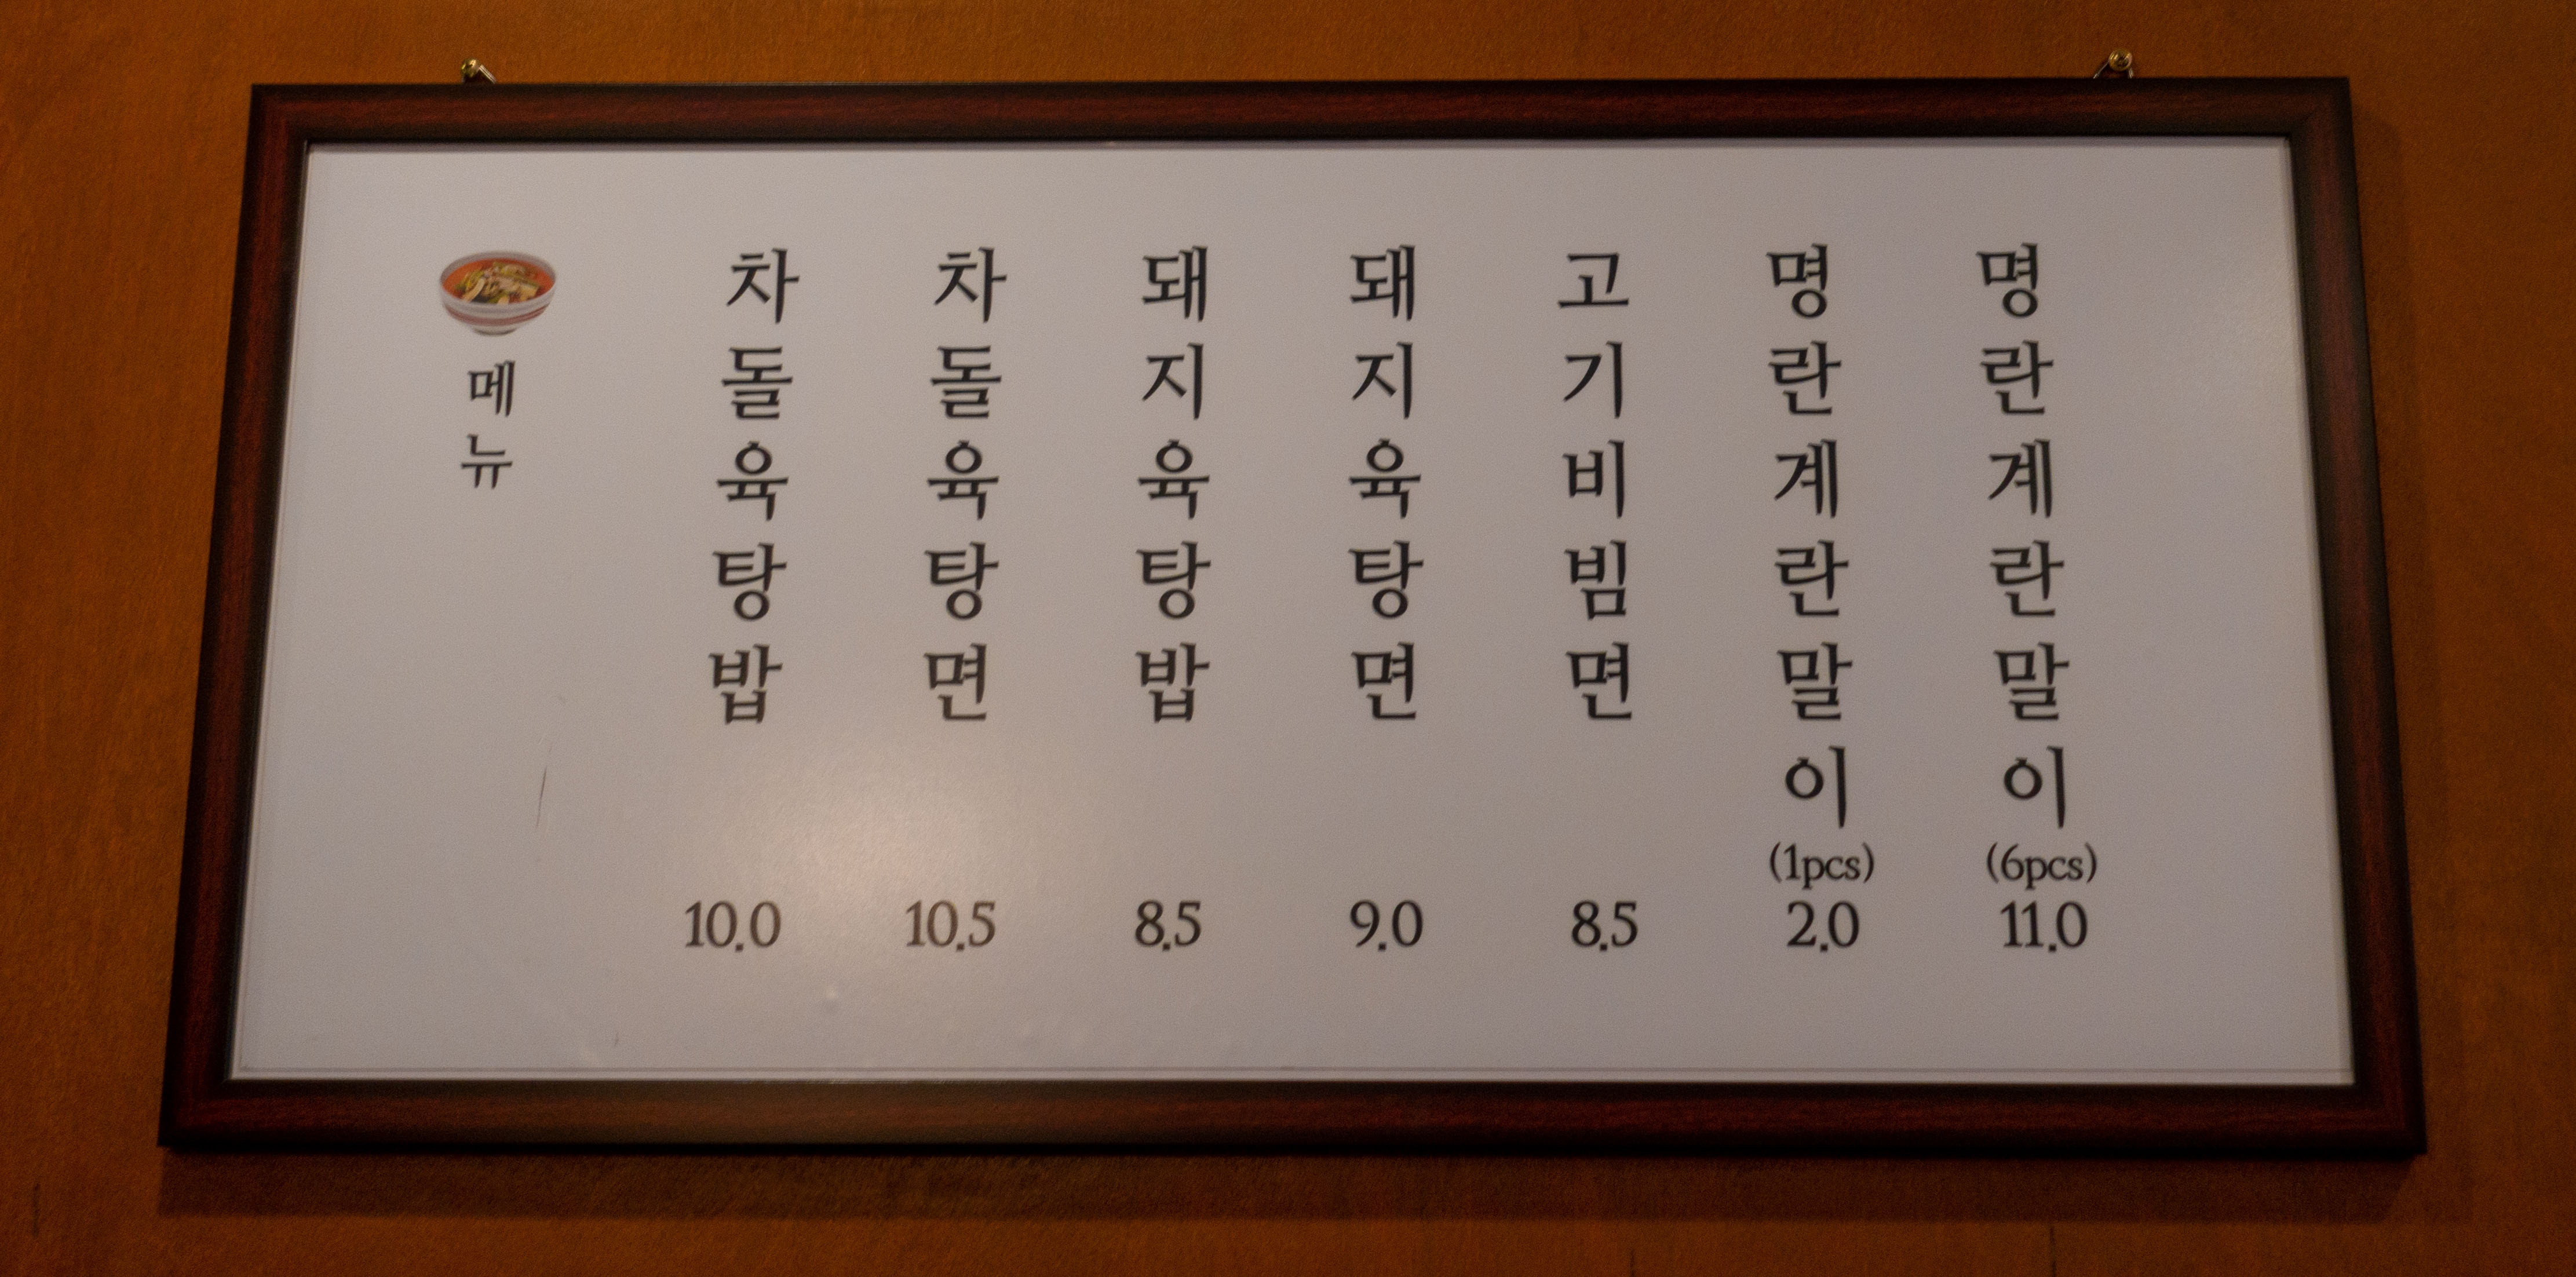 메뉴
차돌육탕밥
10.0
차돌육탕면
10.5
돼지육탕밥
8.5
돼지육탕면
9.0
고기비빔면
8.5
명란계란말이
(1pcs)
2.0
명란계란말이
(6pcs)
11.0